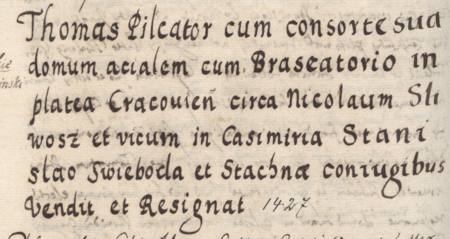 Thomas Pileator cum consorte sua
domum acialem cum Braseatorio in
platea Cracovień circa Nicolaum Sli
wosz et vicum in Casimiria Stani
slao Swieboda et Stachnæ coniugibus
Vendit et Resignat 1427